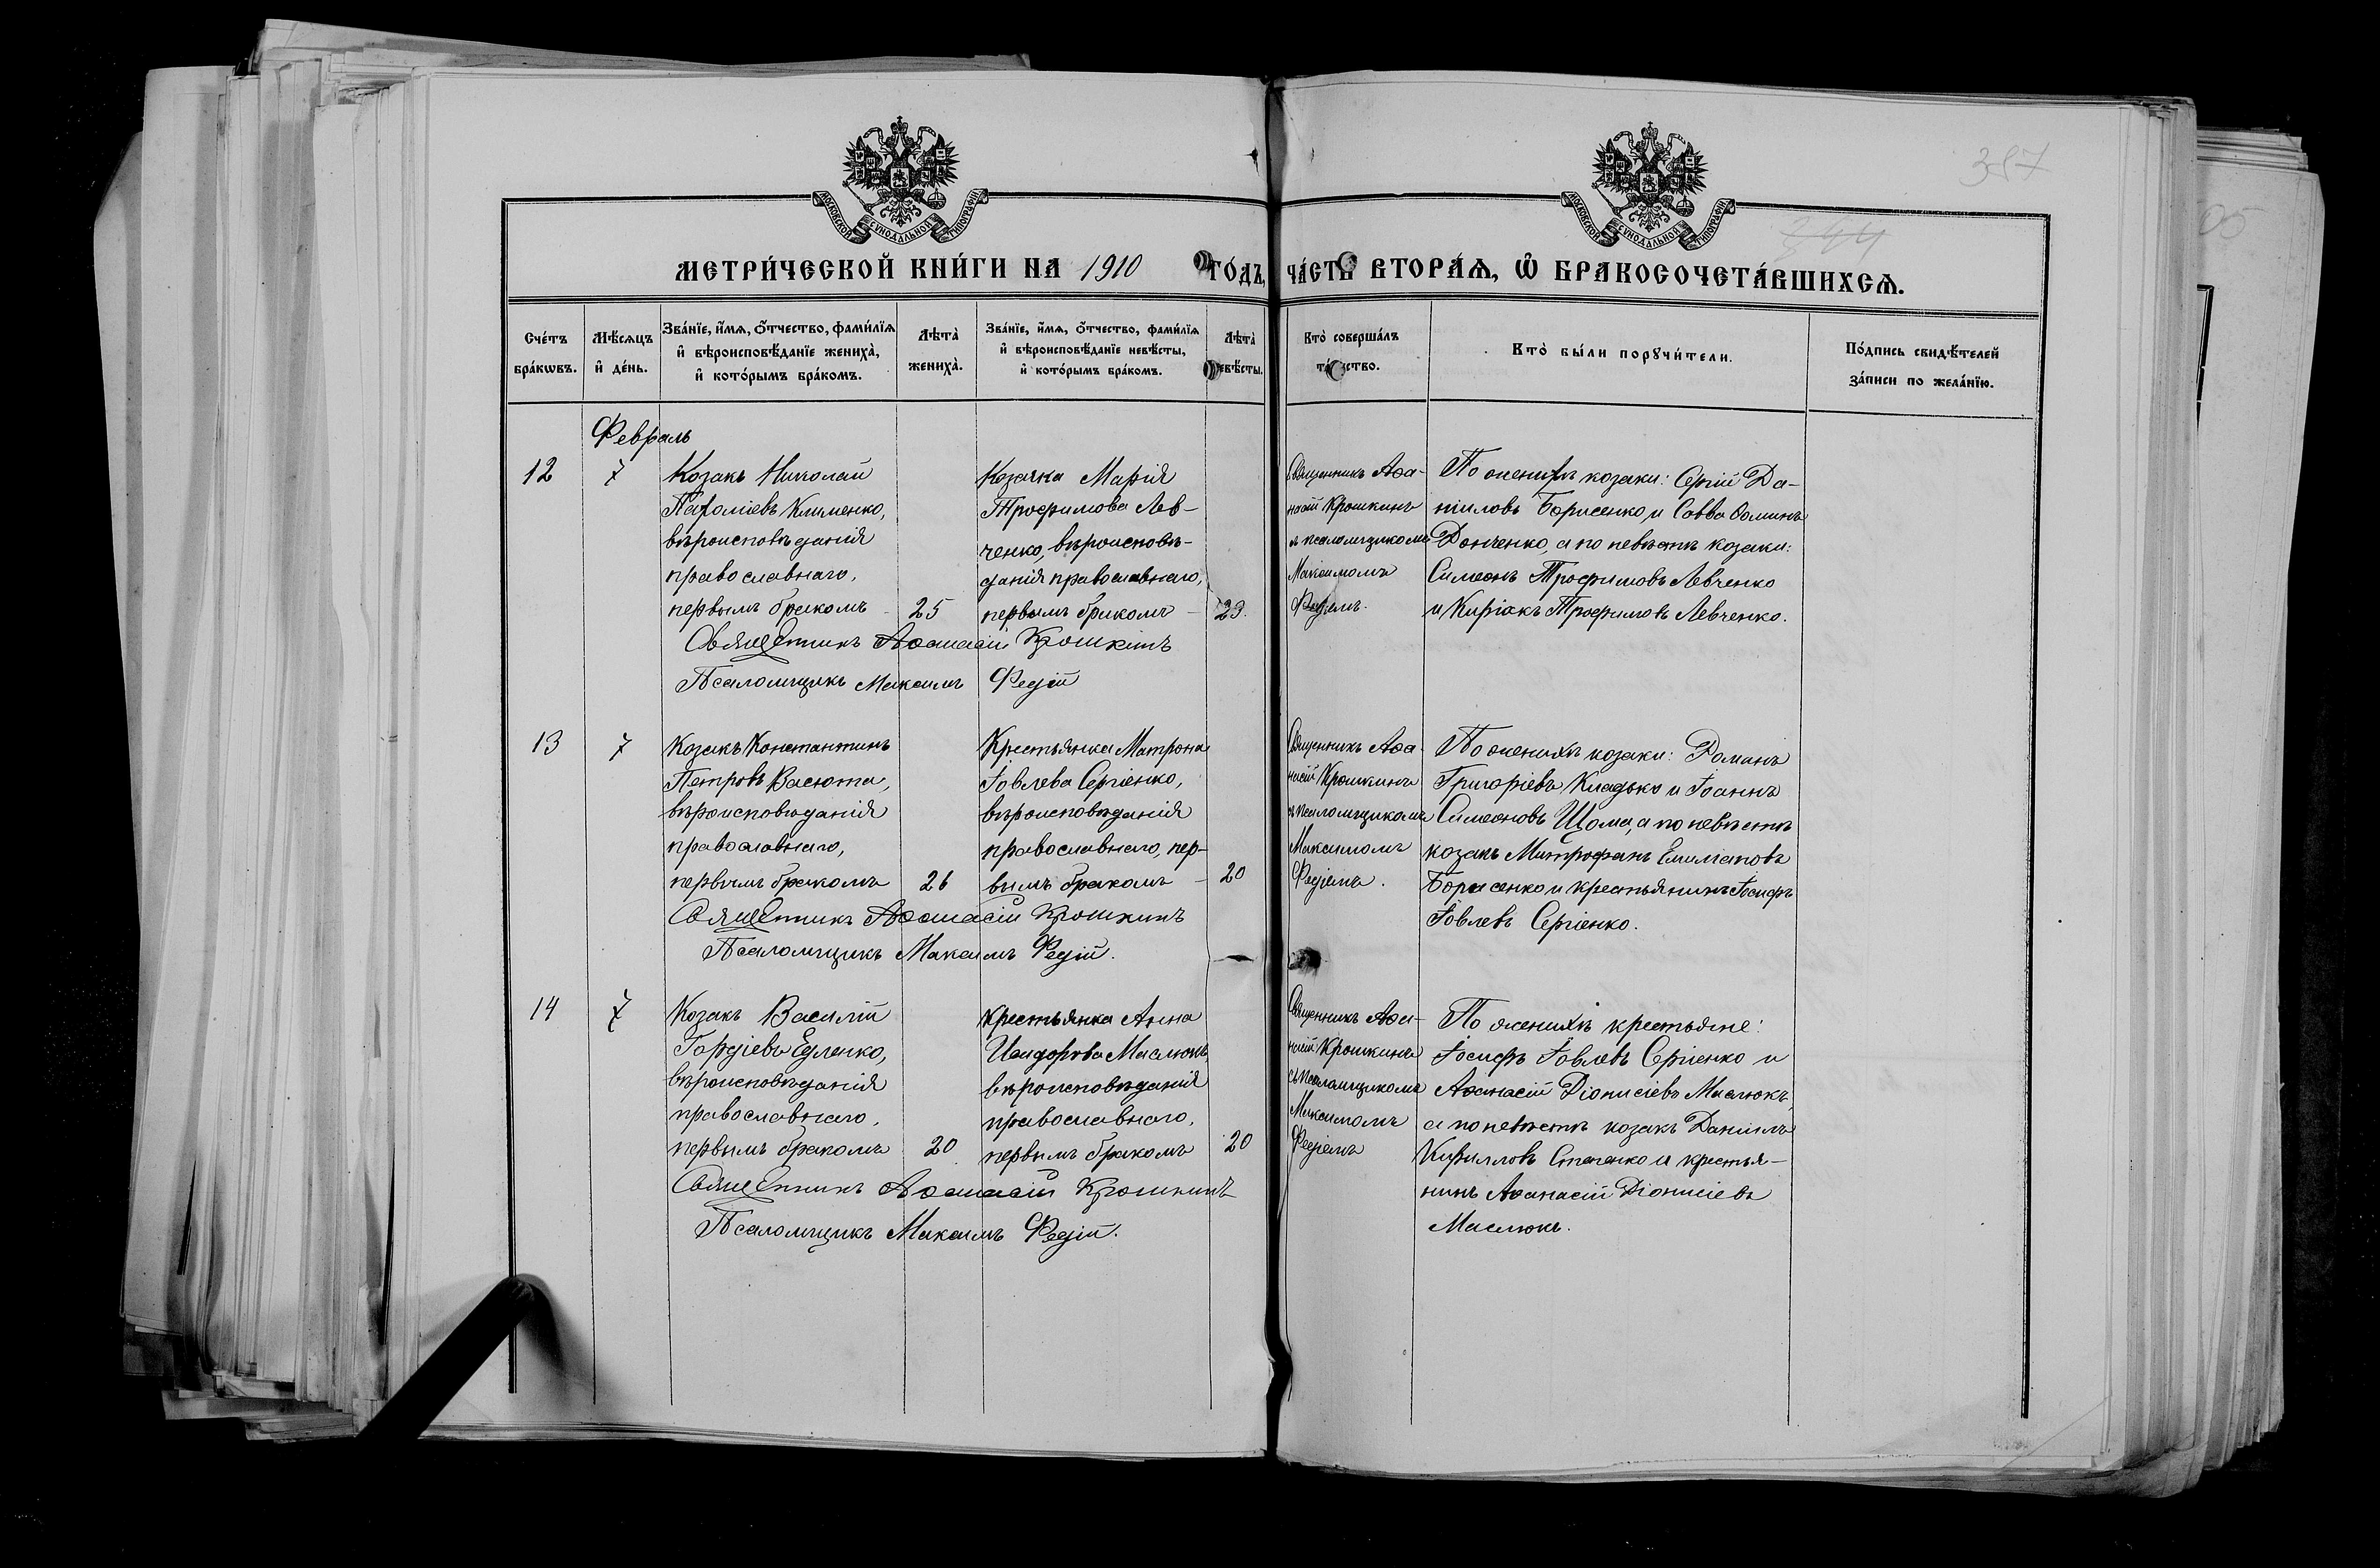 387
244
МОСКОВСКОЙ СѴНОДАЛЬНОЙ ТИПОГРАФІИ
МОСКОВСКОЙ СѴНОДАЛЬНОЙ ТИПОГРАФІИ
МЕТРИ́ЧЕСКОЙ КНИ́ГИ НА 1910 ГО́ДЪ, ЧА́СТЬ ВТОРА́Ѧ, Ѽ БРАКОСОЧЕТА́ВШИХСѦ.
Сче́тъ бра́кѡвъ.
Мѣ́сѧцъ и҆ де́нь.
Зва́нїе, и҆́мѧ, ѻ҆́тчество, фами́лїѧ и҆ вѣроисповѣ́данїе жениха̀, и҆ кото́рымъ бра́комъ.
Лѣта̀ жениха̀.
Зва́нїе, и҆́мѧ, ѻ҆́тчество, фами́лїѧ и҆ вѣроисповѣ́данїе невѣ́сты, и҆ кото́рымъ бра́комъ.
Лѣта̀ невѣ́сты.
Кто̀ соверша́лъ та́инство.
Кто̀ бы́ли порꙋчи́тели.
По́дпись свидѣ́телей за́писи по жела́нїю.
Февраль
12
7
Козакъ Николай
Клименко,
вѣроисповѣданія
православнаго,
первымъ бракомъ
25
Козачка Марія
Трофимова Лев-
ченко, вѣроисповѣ-
данія православнаго,
первымъ бракомъ
23.
Священникъ Аѳа-
насій Крошкинъ
съ псаломщикомъ
Максимомъ
Федіемъ.
По женихѣ козаки: Сергій Да-
ниловъ Борисенко и Савва Ѳоминъ
Донченко, а по невѣстѣ козаки:
Симеонъ Трофимовъ Левченко
и Киріакъ Трофимовъ Левченко.
Священникъ Аѳанасій Крошкинъ
Псаломщикъ Максимъ Федій
13
7
Козакъ Константинъ
Петровъ Васюта,
вѣроисповѣданія
православнаго,
первымъ бракомъ
26
Крестьянка Матрона
Іовлева Сергіенко,
вѣроисповѣданія
православнаго, пер-
вымъ бракомъ
20
Священникъ Аѳа-
насій Крошкинъ
съ псаломщикомъ
Максимомъ
Федіемъ.
По женихѣ козаки: Романъ
Григоріевъ Кладько и Іоаннъ
Симеоновъ Шома, а по невѣстѣ
козакъ Митрофанъ Емиліановъ
Борисенко и крестьянинъ Іосифъ
Іовлевъ Сергіенко.
Священникъ Аѳанасій Крошкинъ
Псаломщикъ Максимъ Федій.
14
7
Козакъ Василій
Гордіевъ Едленко,
вѣроисповѣданія
православнаго,
первымъ бракомъ
20
Крестьянка Анна
Исидорова Маслюкъ,
вѣроисповѣданія
православнаго,
первымъ бракомъ
20
Священникъ Аѳа-
насій Крошкинъ
съ псаломщикомъ
Максимомъ
Федіемъ
По женихѣ крестьяне:
Іосифъ Іовлевъ Сергіенко и
Аѳанасій Діонисіевъ Маслюкъ,
а по невѣстѣ козакъ Даніилъ
Кирилловъ Стеценко и крестья-
нинъ Аѳанасій Діонисіевъ
Маслюкъ.
Священникъ Аѳанасій Крошкинъ
Псаломщикъ Максимъ Федій.